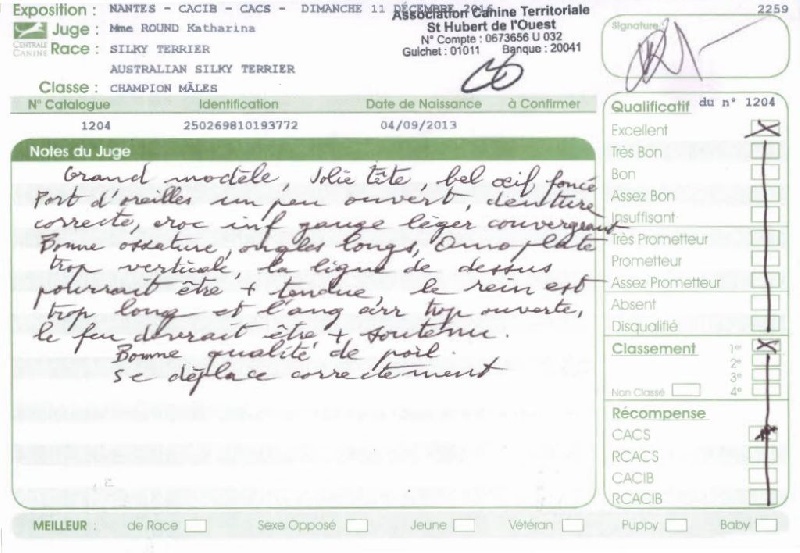 Exposition : NANTES - CACIB - CACS - DIMANCHE 11 DÉCEMBRE 2016 2259
Juge : Mme ROUND Katharina
CENTRALE CANINE
Race : SILKY TERRIER
AUSTRALIAN SILKY TERRIER
Classe : CHAMPION MÂLES
Association Canine Territoriale
St Hubert de l'Ouest
N° Compte : 0673656 U 032
Guichet : 01011 Banque : 20041
Signature :
N° Catalogue Identification Date de Naissance à Confirmer
1204 250269810193772 04/09/2013
Notes du Juge
Grand modèle, Jolie tête, bel œil foncé
Port d'oreilles un peu ouvert, denture
correcte, croc inf gauge léger convergeant
Bonne ossature, ongles longs, Omoplate
trop verticale, la ligne de dessus
pourrait être + tendue, le rein est
trop long et l'ang arr trop ouverte,
le feu devrait être + soutenu.
Bonne qualité de poil
se déplace correctement
Qualificatif du n° 1204
Excellent
Très Bon
Bon
Assez Bon
Insuffisant
Très Prometteur
Prometteur
Assez Prometteur
Absent
Disqualifié
Classement 1er
2e
3e
Non Classé 4e
Récompense
CACS
RCACS
CACIB
RCACIB
MEILLEUR : de Race Sexe Opposé Jeune Vétéran Puppy Baby